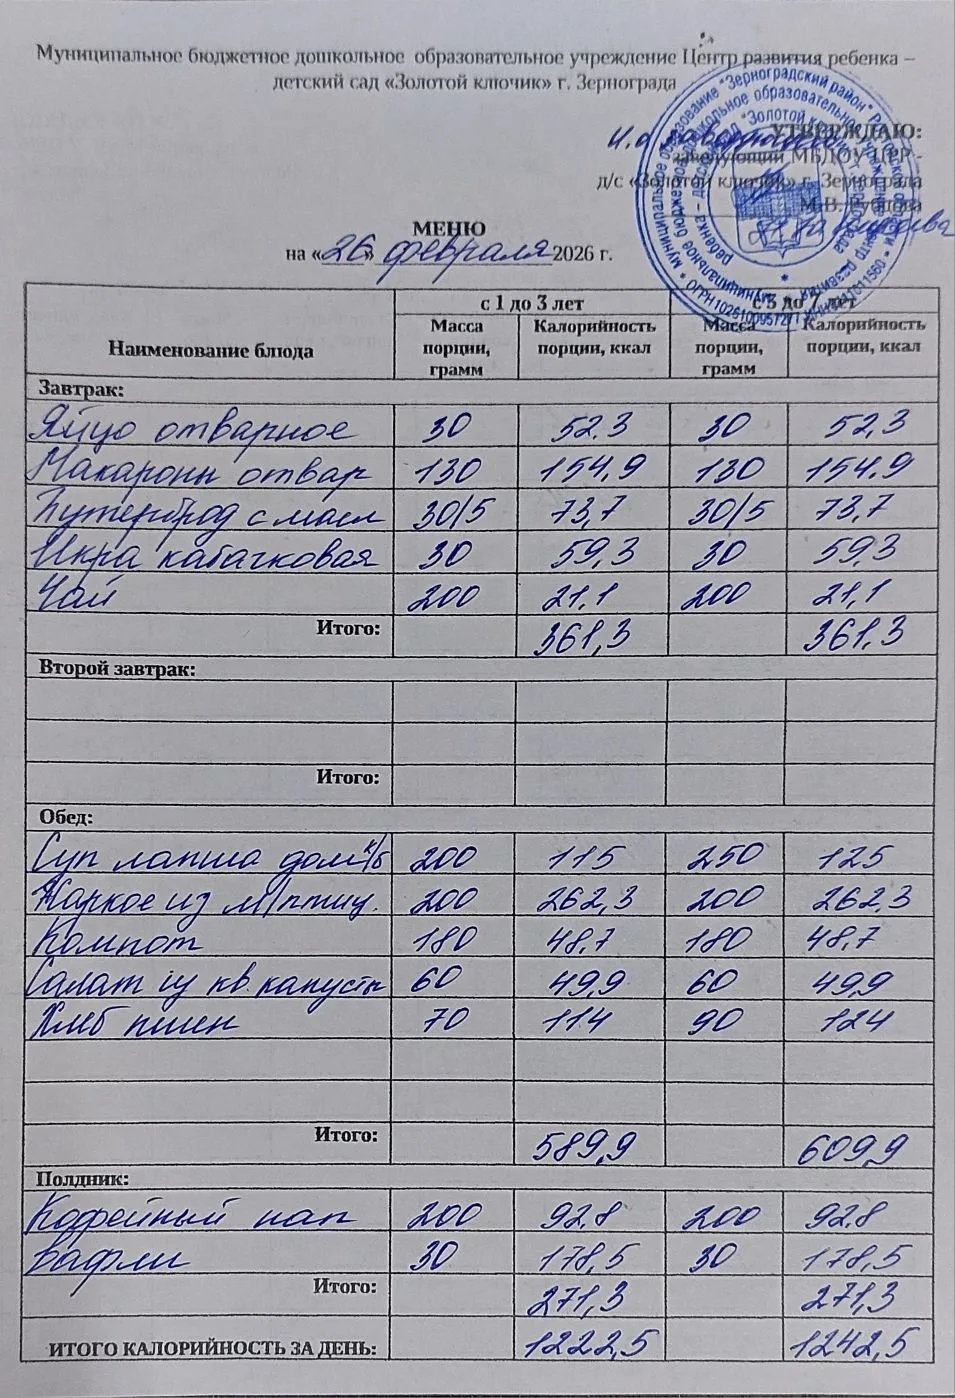 Муниципальное бюджетное дошкольное образовательное учреждение Центр развития ребенка –
детский сад «Золотой ключик» г. Зернограда
УТВЕРЖДАЮ:
заведующий МБДОУ ЦРР -
д/с «Золотой ключик» г. Зернограда
М.В. Рубцова
МЕНЮ
на «26» февраля 2026 г.
Наименование блюда с 1 до 3 лет с 3 до 7 лет
Масса порции, грамм Калорийность порции, ккал Масса порции, грамм Калорийность порции, ккал
Завтрак:
Яйцо отварное 30 52.3 30 52,3
Макароны отвар 130 154.9 130 154.9
Бутерброд с масл 30/5 73,7 30/5 73,7
Икра кабачковая 30 59,3 30 59,3
Чай 200 21,1 200 21,1
Итого: 361,3 361,3
Второй завтрак:
Итого:
Обед:
Суп лапша дом к/б 200 115 250 125
Жаркое из м/птиц. 200 262,3 200 262.3
Компот 180 48.7 180 48,7
Салат из кв. капусты 60 49,9 60 49,9
Хлеб пшен 70 114 90 124
Итого: 589,9 609,9
Полдник:
Кофейный нап 200 92.8 200 92.8
Вафли 30 178,5 30 178,5
Итого: 271,3 271,3
ИТОГО КАЛОРИЙНОСТЬ ЗА ДЕНЬ: 1222,5 1242,5